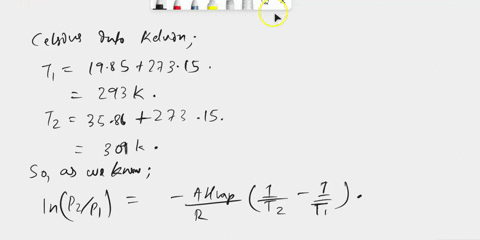 Celsius into Kelvin;
T₁ = 19.85 + 273.15.
= 293 K.
T₂ = 35.86 + 273.15.
= 309 K.
So, as we know;
ln(P₂/P₁) = - ΔHvap/R (1/T₂ - 1/T₁).